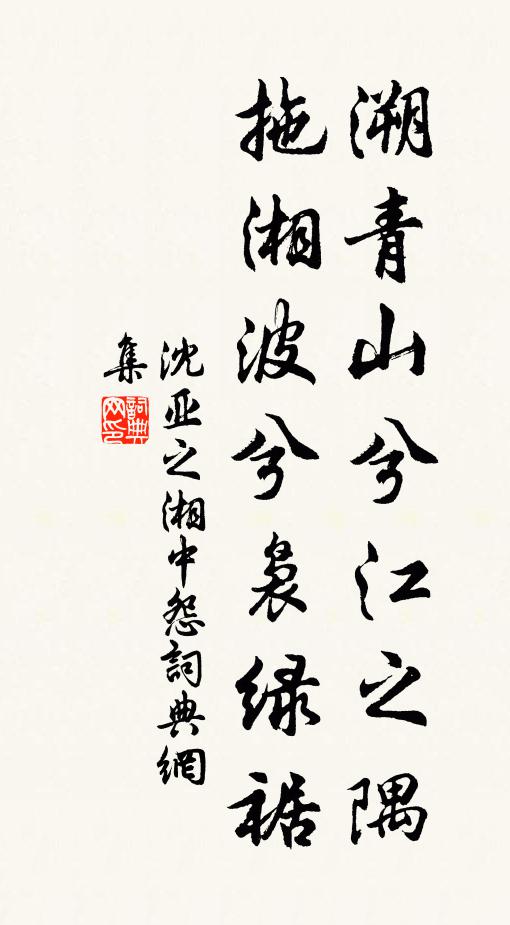 溯青山兮江之隅
拖湘波兮袅绿裾
沈亚之湘中怨詞典網
集
詞典
网印